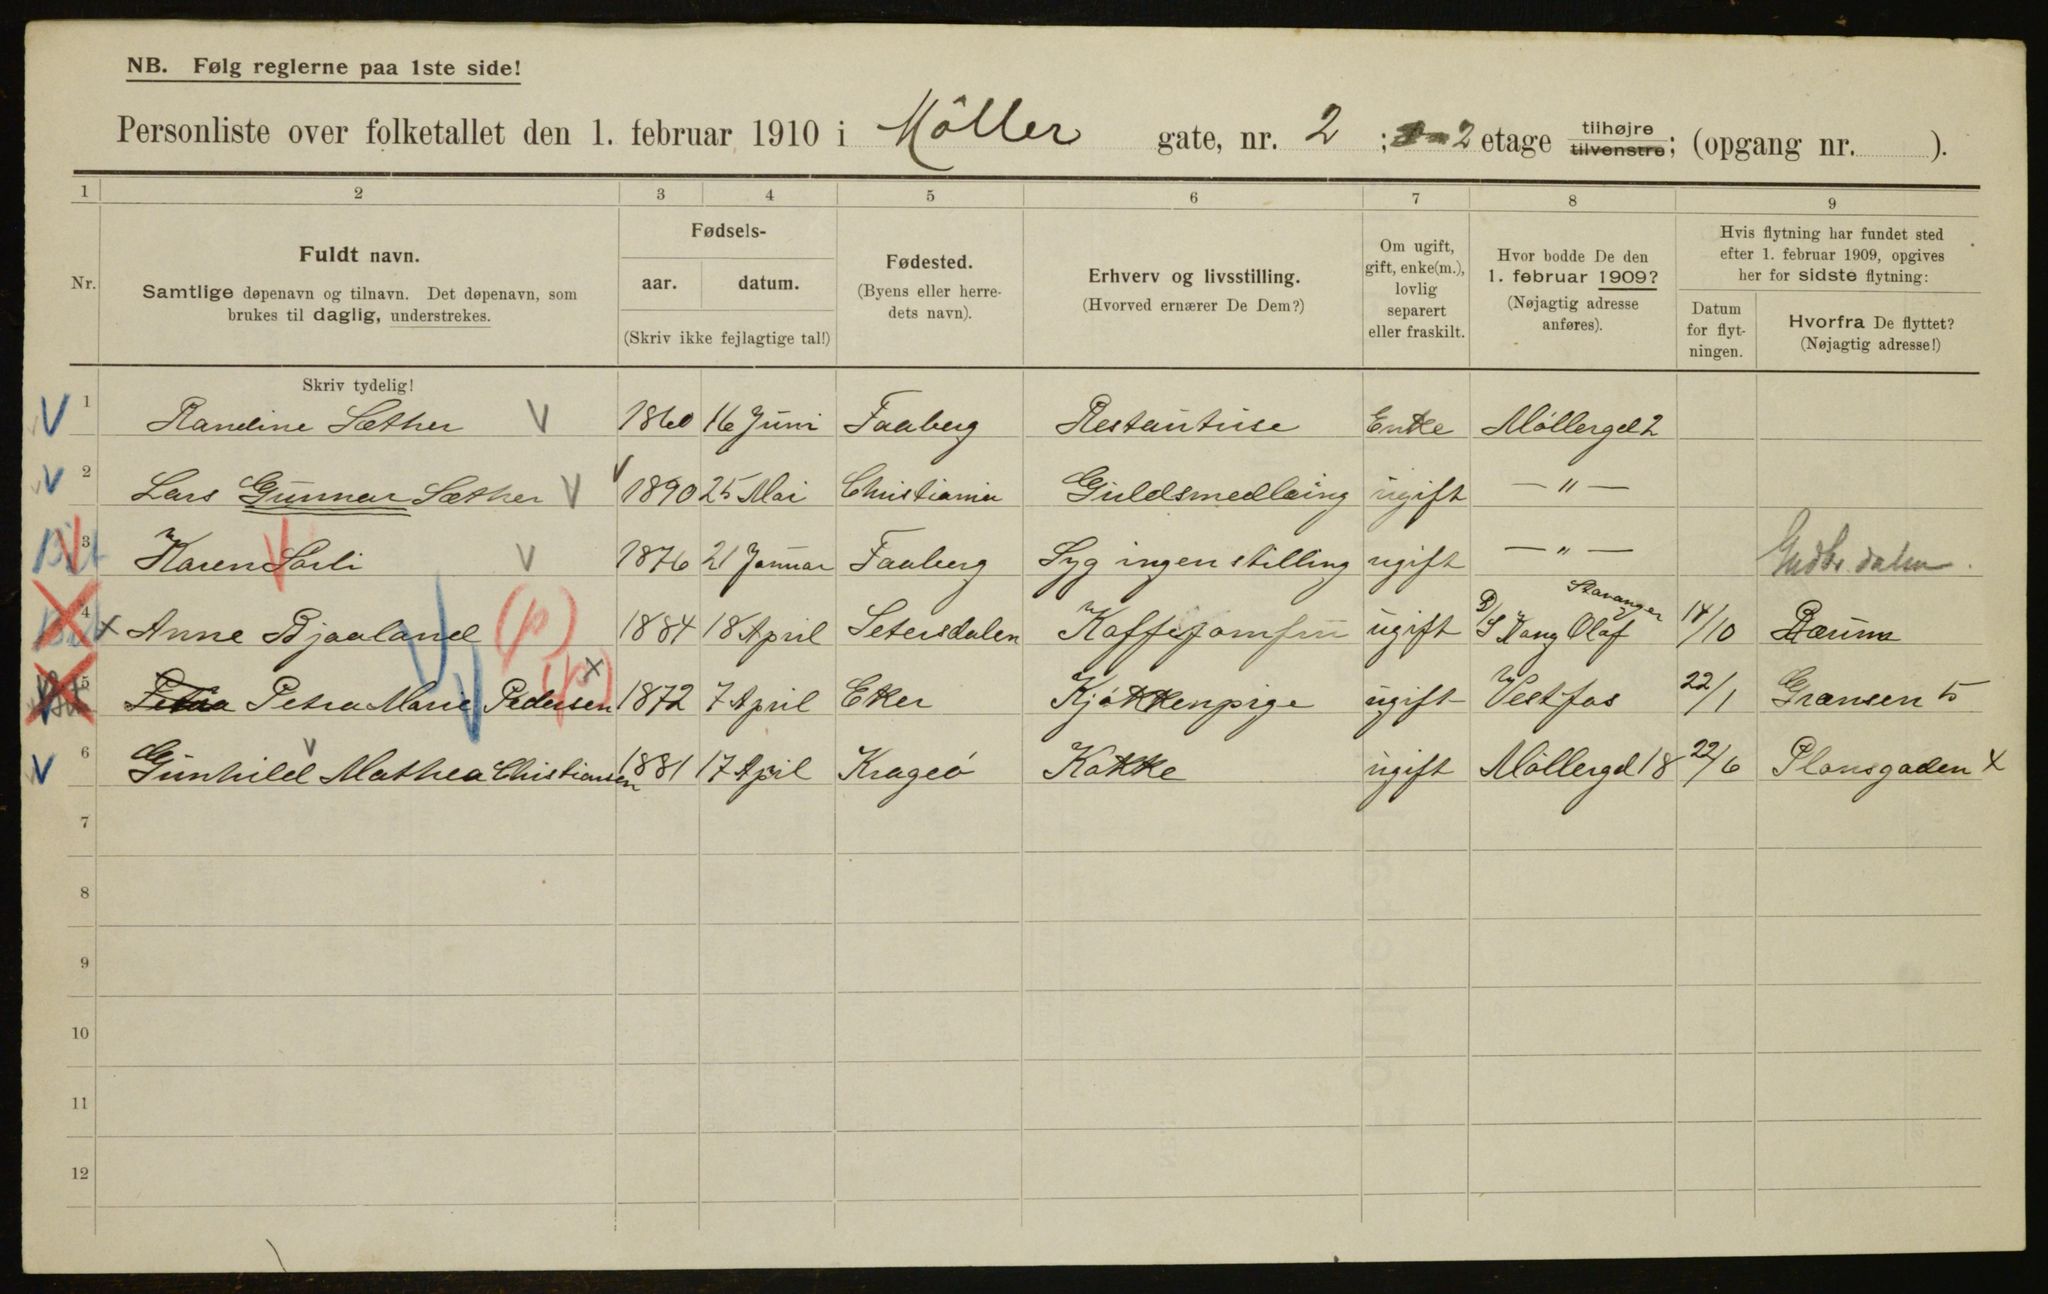 NB. Følg reglerne paa 1ste side!
Personliste over folketallet den 1. februar 1910 i Möller gate, nr. 2 ; 2 etage tilhøjre tilvenstre; (opgang nr. ).
1 2 3 4 5 6 7 8 9
Nr.
Fuldt navn.
Samtlige døpenavn og tilnavn. Det døpenavn, som
brukes til daglig, understrekes.
Fødsels-
aar. datum.
(Skriv ikke fejlagtige tal!)
Fødested.
(Byens eller herre-
dets navn).
Erhverv og livsstilling.
(Hvorved ernærer De Dem?)
Om ugift,
gift, enke(m.),
lovlig
separert
eller fraskilt.
Hvor bodde De den
1. februar 1909?
(Nøjagtig adresse
anføres).
Hvis flytning har fundet sted
efter 1. februar 1909, opgives
her for sidste flytning:
Datum
for flyt-
ningen.
Hvorfra De flyttet?
(Nøjagtig adresse!)
Skriv tydelig!
V 1 Randine Sæther V 1860 16 Juni Faaberg Restautrise Enke Möllergd 2
V 2 Lars Gunnar Sæther V V 1890 25 Mai Christiania Guldsmedlæing ugift — " —
3 Karen Sörli V 1876 21 Januar Faaberg Syg ingen stilling ugift — " — Gudbr.dalen.
4 x Anne Bjaaland (p) 1884 18 April Setersdalen Kaffejomfru ugift D/S Kong Olaf Stavanger 14/10
5 Petra Petra Marie Pedersen (p) x 1872 7 April Eker Kjøkkenpige ugift Vestfos 22/1 Grænsen 15
V 6 Gunhild Mathea Christiansen V 1881 17 April Krageö Kokke ugift Möllergd 18 22/6 Plønsgaden x
7
8
9
10
11
12